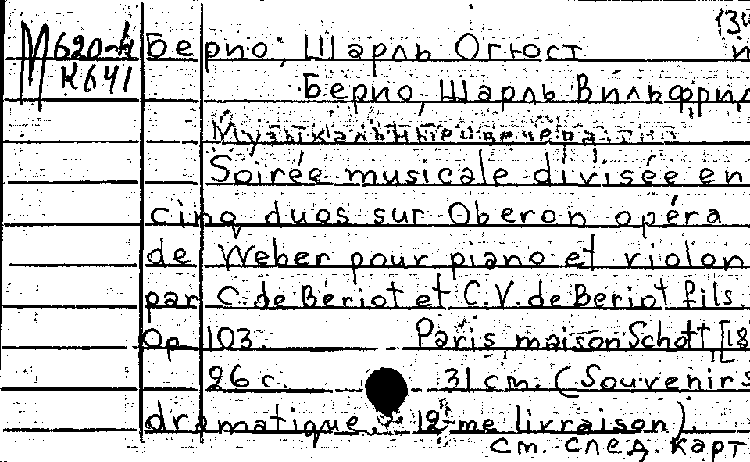 134
М620-4 Берио, Шарль Огюст
К641
Берио, Шарль Вильфрид
Музыкальные вечера
Soirée musicale divisée en
cinq duos sur Oberon opéra
de Weber pour piano et violon
par C. de Beriot et C.V. de Beriot fils.
Op 103. Paris, maison Schott, [18
26 с. 31 см. (Souvenirs
dramatique. 12me livraison).
См. след. карт